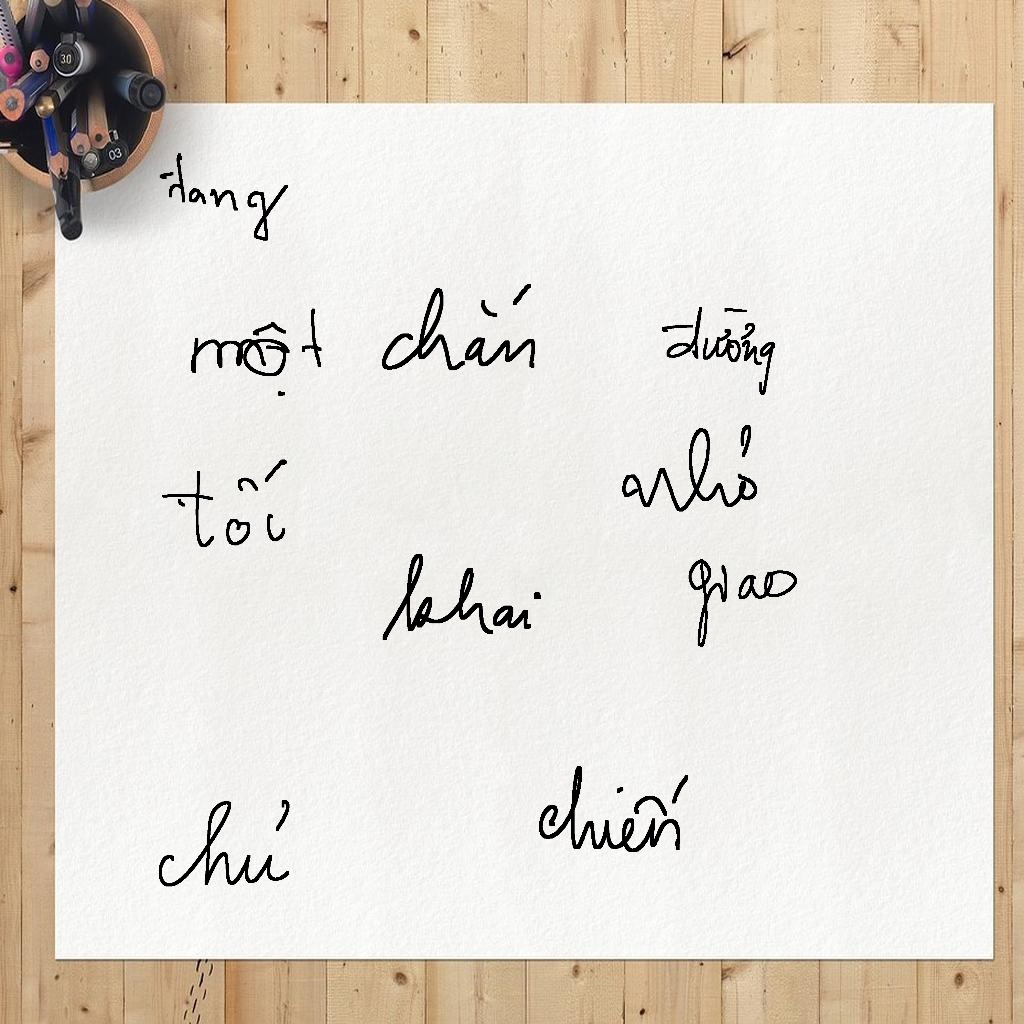 đang
một chắn đưởng
tối nhỏ
khai giao
chủ chiến